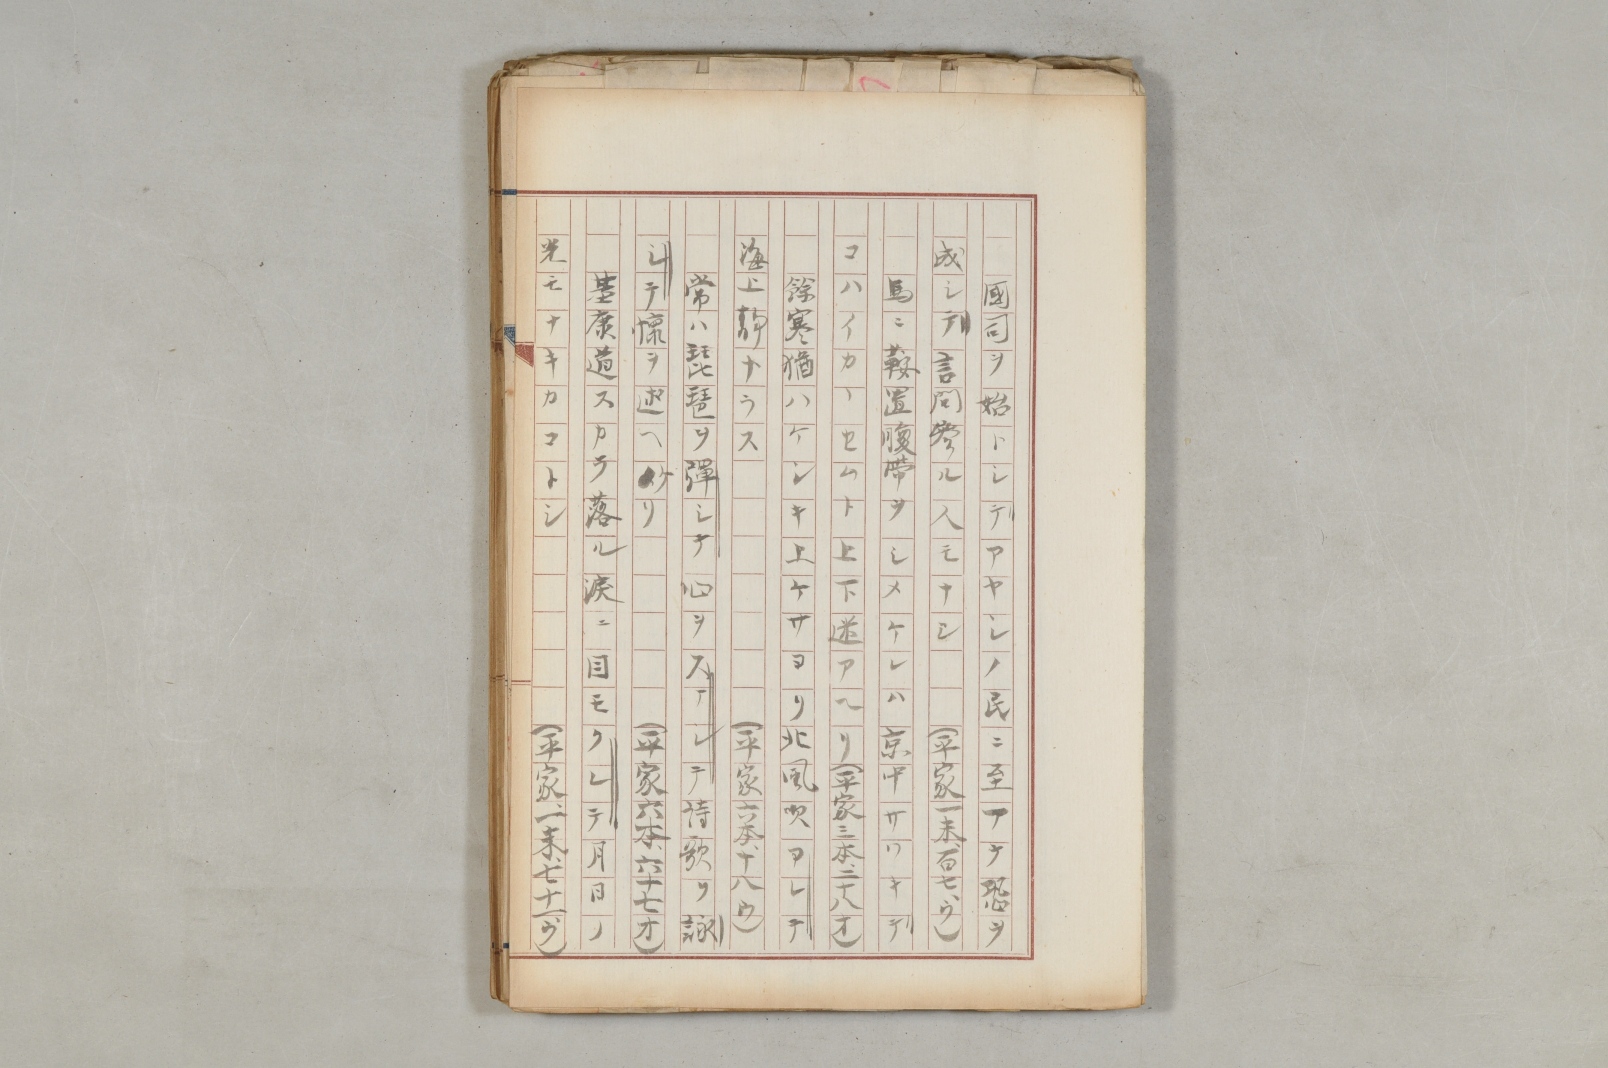 國司ヲ始トシテアヤシノ民ニ至マテ恐ヲ
成シテ言問參ル人モナシ（平家一末、百七、ウ）
馬ニ鞍置腹帶ヲシメケレハ京中サワキテ
コハイカヽセムト上下迷アヘリ（平家三本、二十八オ）
餘寒猶ハケシキ上ケサヨリ北風吹ヨレテ
海上靜ナラス（平家六本、十八ウ）
常ハ琵琶ヲ彈シナ心ヲスマシテ詩歌ヲ詠
シテ懷ヲ述ヘケリ（平家六本、六十七オ）
基康道スカラ落ル淚ニ目モクレテ月日ノ
光モナキカコトシ（平家、一末、七十一、ウ）